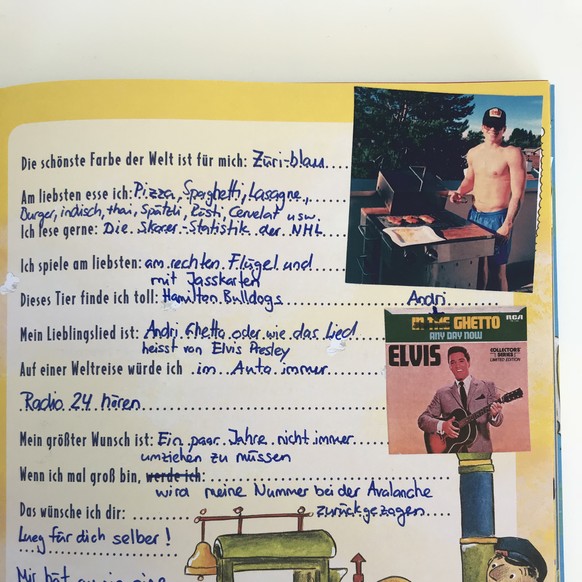 Die schönste Farbe der Welt ist für mich: Züri-blau
Am liebsten esse ich: Pizza, Spaghetti, Lasagne,
Burger, indisch, thai, Spätzli, Rösti, Cervelat usw.
Ich lese gerne: Die Skorer-Statistik der NHL
Ich spiele am liebsten: am rechten Flügel und
mit Jasskarten
Dieses Tier finde ich toll: Hamilton Bulldogs
Andri
Mein Lieblingslied ist: Andri Ghetto oder wie das Lied
heisst von Elvis Presley
IN THE GHETTO
ANY DAY NOW
RCA
ELVIS
COLLECTORS'
SERIES
LIMITED EDITION
Auf einer Weltreise würde ich im Auto immer
Radio 24 hören
Mein größter Wunsch ist: Ein paar Jahre nicht immer
umziehen zu müssen
Wenn ich mal groß bin, werde ich:
wird meine Nummer bei der Avalanche
zurückgezogen
Das wünsche ich dir:
Lueg für dich selber!
Mir hät